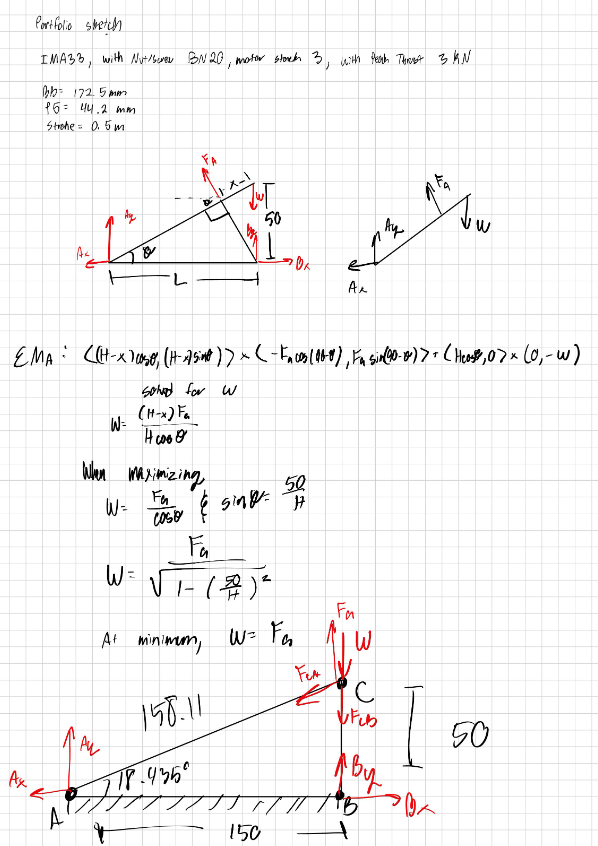 Portfolio sketch
IMA33, with Nut/Screw BN20, motor stack 3, with Peak Thrust 3 kN
BD= 172.5mm
PG= 44.2 mm
Stroke= 0.5m
F_A
x
W
A_y
50
A_x
θ
L
B_x
F_a
A_y
W
A_x
ΣM_A: <(H-x)cosθ, (H-x)sinθ)> × <-F_a cos(90-θ), F_a sin(90-θ)> + <Hcosθ, 0> × (0, -W)
solved for W
W= (H-x)F_a / H cosθ
When maximizing,
W= F_a / cosθ & sinθ= 50/H
W= F_a / √(1-(50/H)²)
At minimum, W= F_a
F_a
W
F_CA
C
158.11
F_CB
50
A_y
18.435°
B_y
A_x
A
B
B_x
150